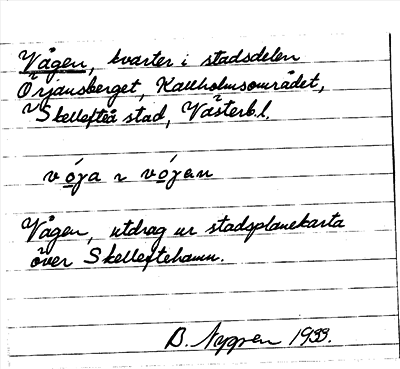 Vågen, kvarter i stadsdelen
Örjansberget, Kallholmsområdet,
Skellefteå stad, Västerb.l.
vó̲ga ~ vó̲gen
Vågen, utdrag ur stadsplanekarta
över Skelleftehamn.
B. Nygren 1933.